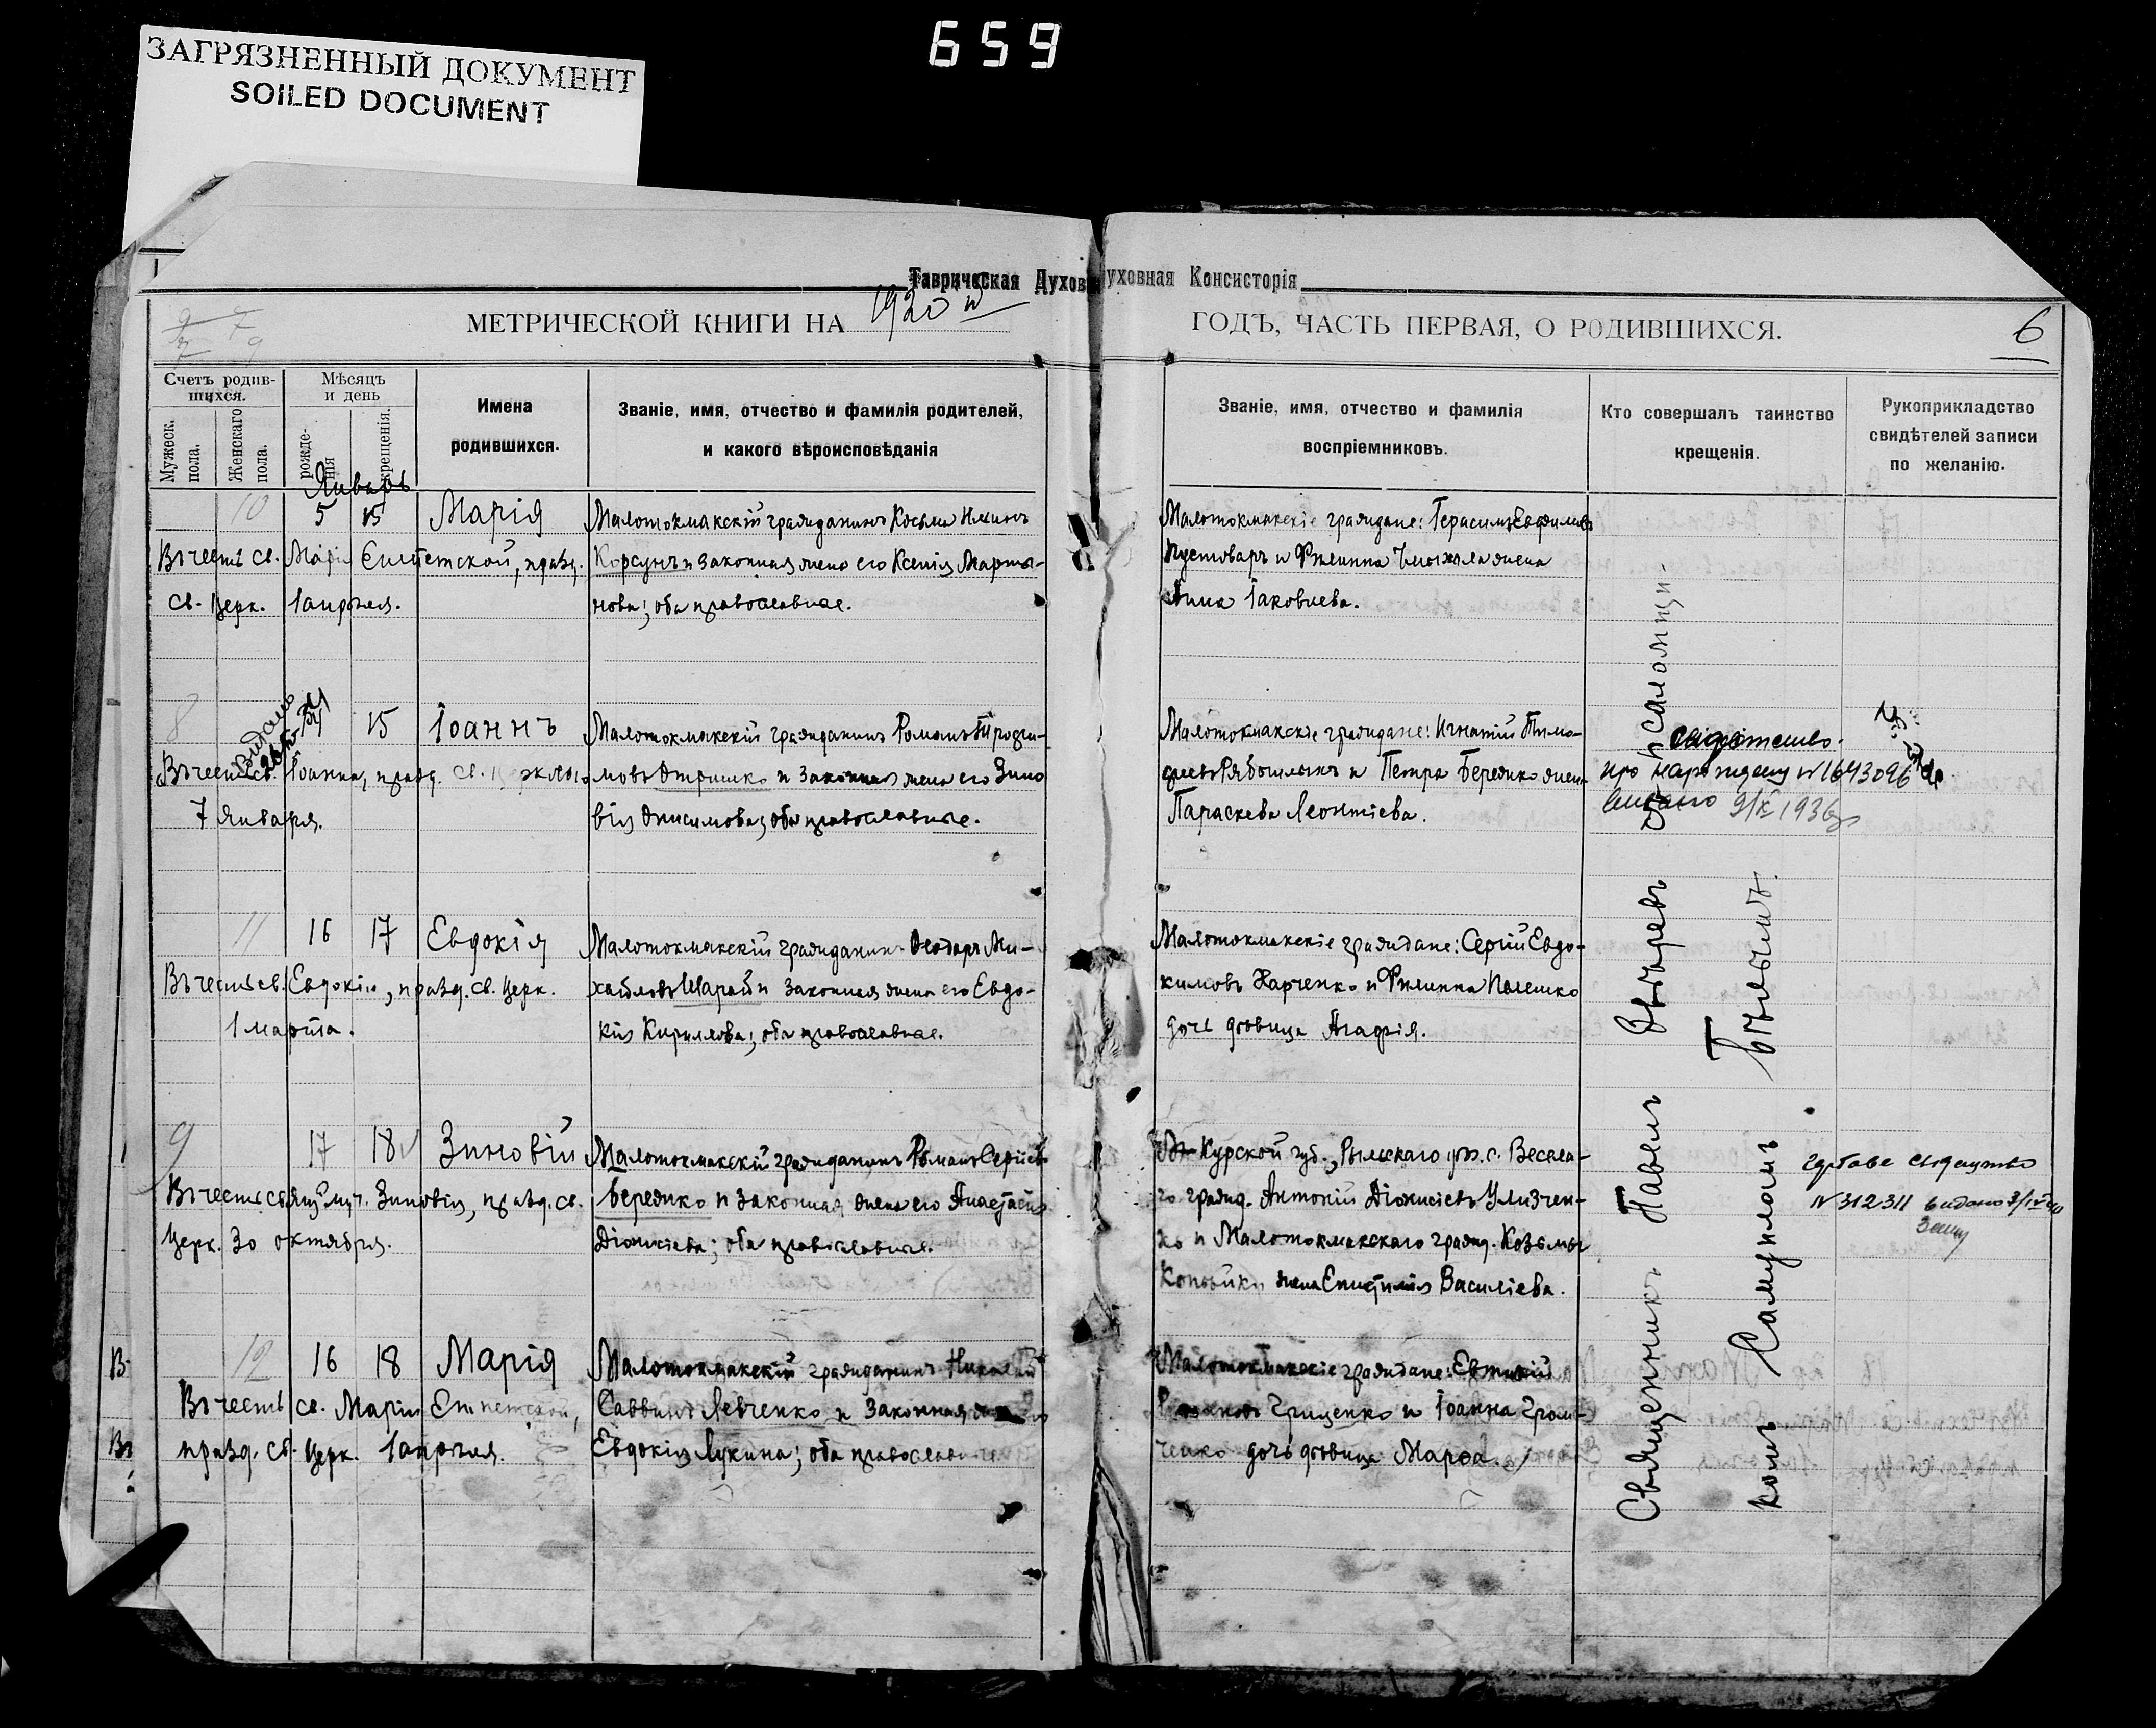 659
ЗАГРЯЗНЕННЫЙ ДОКУМЕНТ
SOILED DOCUMENT
Таврическая Духов
уховная Консисторія
МЕТРИЧЕСКОЙ КНИГИ НА 1920 й
ГОДЪ, ЧАСТЬ ПЕРВАЯ, О РОДИВШИХСЯ.
6
Счетъ родив-
шихся.
Мужеск.
пола.
Женскаго
пола.
Мѣсяцъ
и день
рожде-
нія
крещенія.
Имена
родившихся.
Званіе, имя, отчество и фамилія родителей,
и какого вѣроисповѣданія
Званіе, имя, отчество и фамилія
воспріемниковъ.
Кто совершалъ таинство
крещенія.
Рукоприкладство
свидѣтелей записи
по желанію.
Январь
10 5 15 Марія
Въ честь св. Маріи Египетской, празд.
св. Церк. 1 апрѣля.
Малотокмакскій гражданинъ Косьма
Корсунъ и законная жена его Ксенія Марты-
нова; оба православные.
Малотокмакскіе граждане: Герасимъ Евфимовъ
Пустоваръ и Филиппа жена
Анна Іаковлева.
8 15 Іоаннъ
Въ честь св. Іоанна, празд. св.
7 Января.
Малотокмакскій гражданинъ Романъ
мовъ Отришко и законная жена его Зино
вія Онисимова; оба православные.
Малотокмакскіе граждане: Игнатій Тимо-
феевъ и Петра Бережко жена
Параскева Леонтіева.
про народжену № 1643096
видано 9/ 1936
11 16 17 Евдокія
Въ честь св. Евдокіи, празд. св. Церк.
1 марта.
Малотокмакскій гражданинъ Ѳеодоръ Ми-
хайловъ Шарай и законная жена его Евдо-
кія Кириллова; оба православные.
Малотокмакскіе граждане: Сергій Евдо-
кимовъ Харченко и Филиппа
дочь дѣвица Агафія.
9 17 18 Зиновій
Въ честь Зиновія, празд. св.
Церк. 30 октября.
Малотокмакскій гражданинъ Романъ Сергіевъ
Бережко и законная жена его Анастасія
Діонисіева; оба православные.
Курской губ., Рыльскаго у. с. Весела-
го гражд. Антоній Діонисіевъ Улизчен-
ко и Малотокмакскаго гражд. Козьмы
Копѣйки жена Епистимія Василіева.
№ 312311 видано
12 16 18 Марія
Въ честь св. Маріи Египетской,
празд. св. Церк. 1 апрѣля.
Малотокмакскій гражданинъ Николай
Саввинъ Левченко и законная
Евдокія Лукина; оба православные.
Малотокмакскіе граждане: Евтихій
Грищенко и Іоанна Гром-
ченко дочь дѣвица Марѳа.
Священникъ Павелъ съ псаломщи-
комъ Самуиломъ